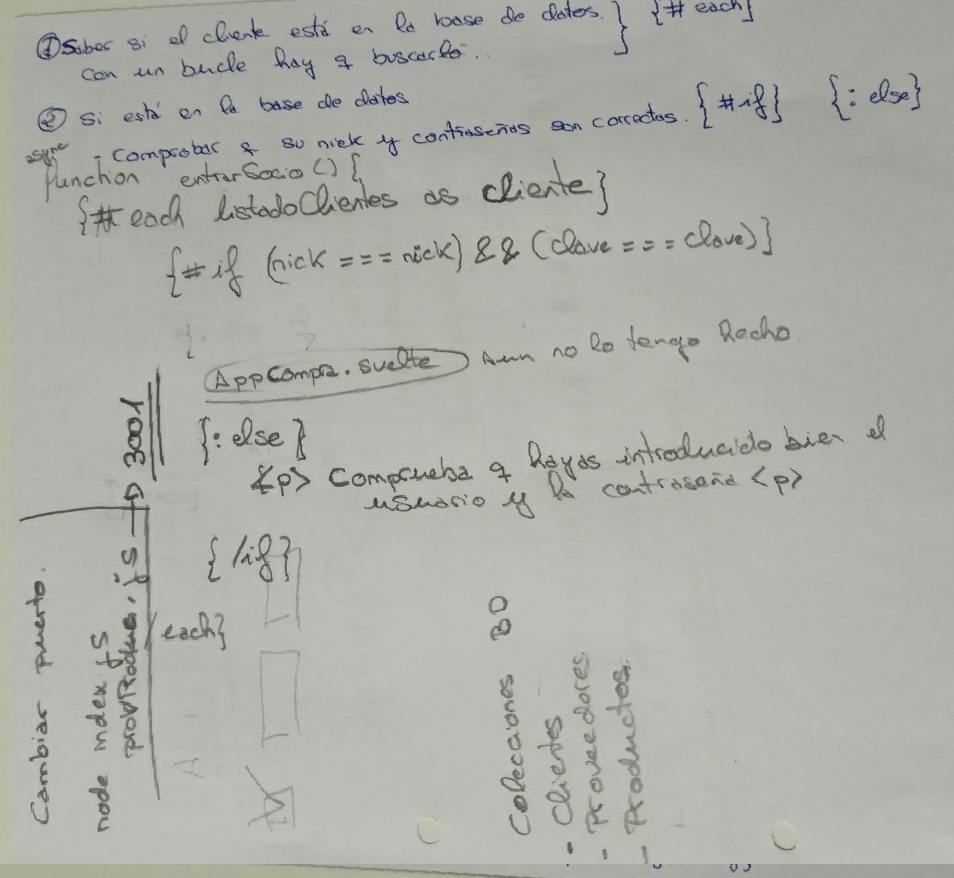 ① Saber si el cliente está en la base de datos. } {# each}
con un bucle hay q buscarlo..
② Si está en la base de datos
- Comprobar q su nick y contraseñas son correctas. {#if} {: else}
async
function entrarSocio () {
{# each listadoClientes as cliente}
{# if (nick === nick) && (clave === clave)}
AppCompra.svelte Aun no lo tengo hecho.
{: else}
<p> Comprueba q hayas introducido bien el
usuario y la contraseña <p>
{/if}
/each}
Cambiar puerto.
node index.js
provProduc.js → 3001
Colecciones BD
- Clientes
- Proveedores.
- Productos.